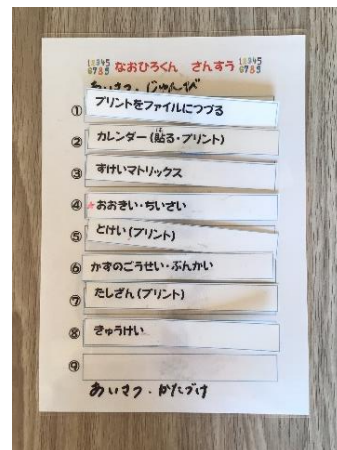 なおひろくん さんすう
あいさつ・じゅんび
① プリントをファイルにつづる
② カレンダー(貼る・プリント)
③ すけいマトリックス
④ おおきい・ちいさい
⑤ とけい(プリント)
⑥ かずのごうせい・ぶんかい
⑦ たしざん(プリント)
⑧ きゅうけい
⑨
あいさつ・かたづけ